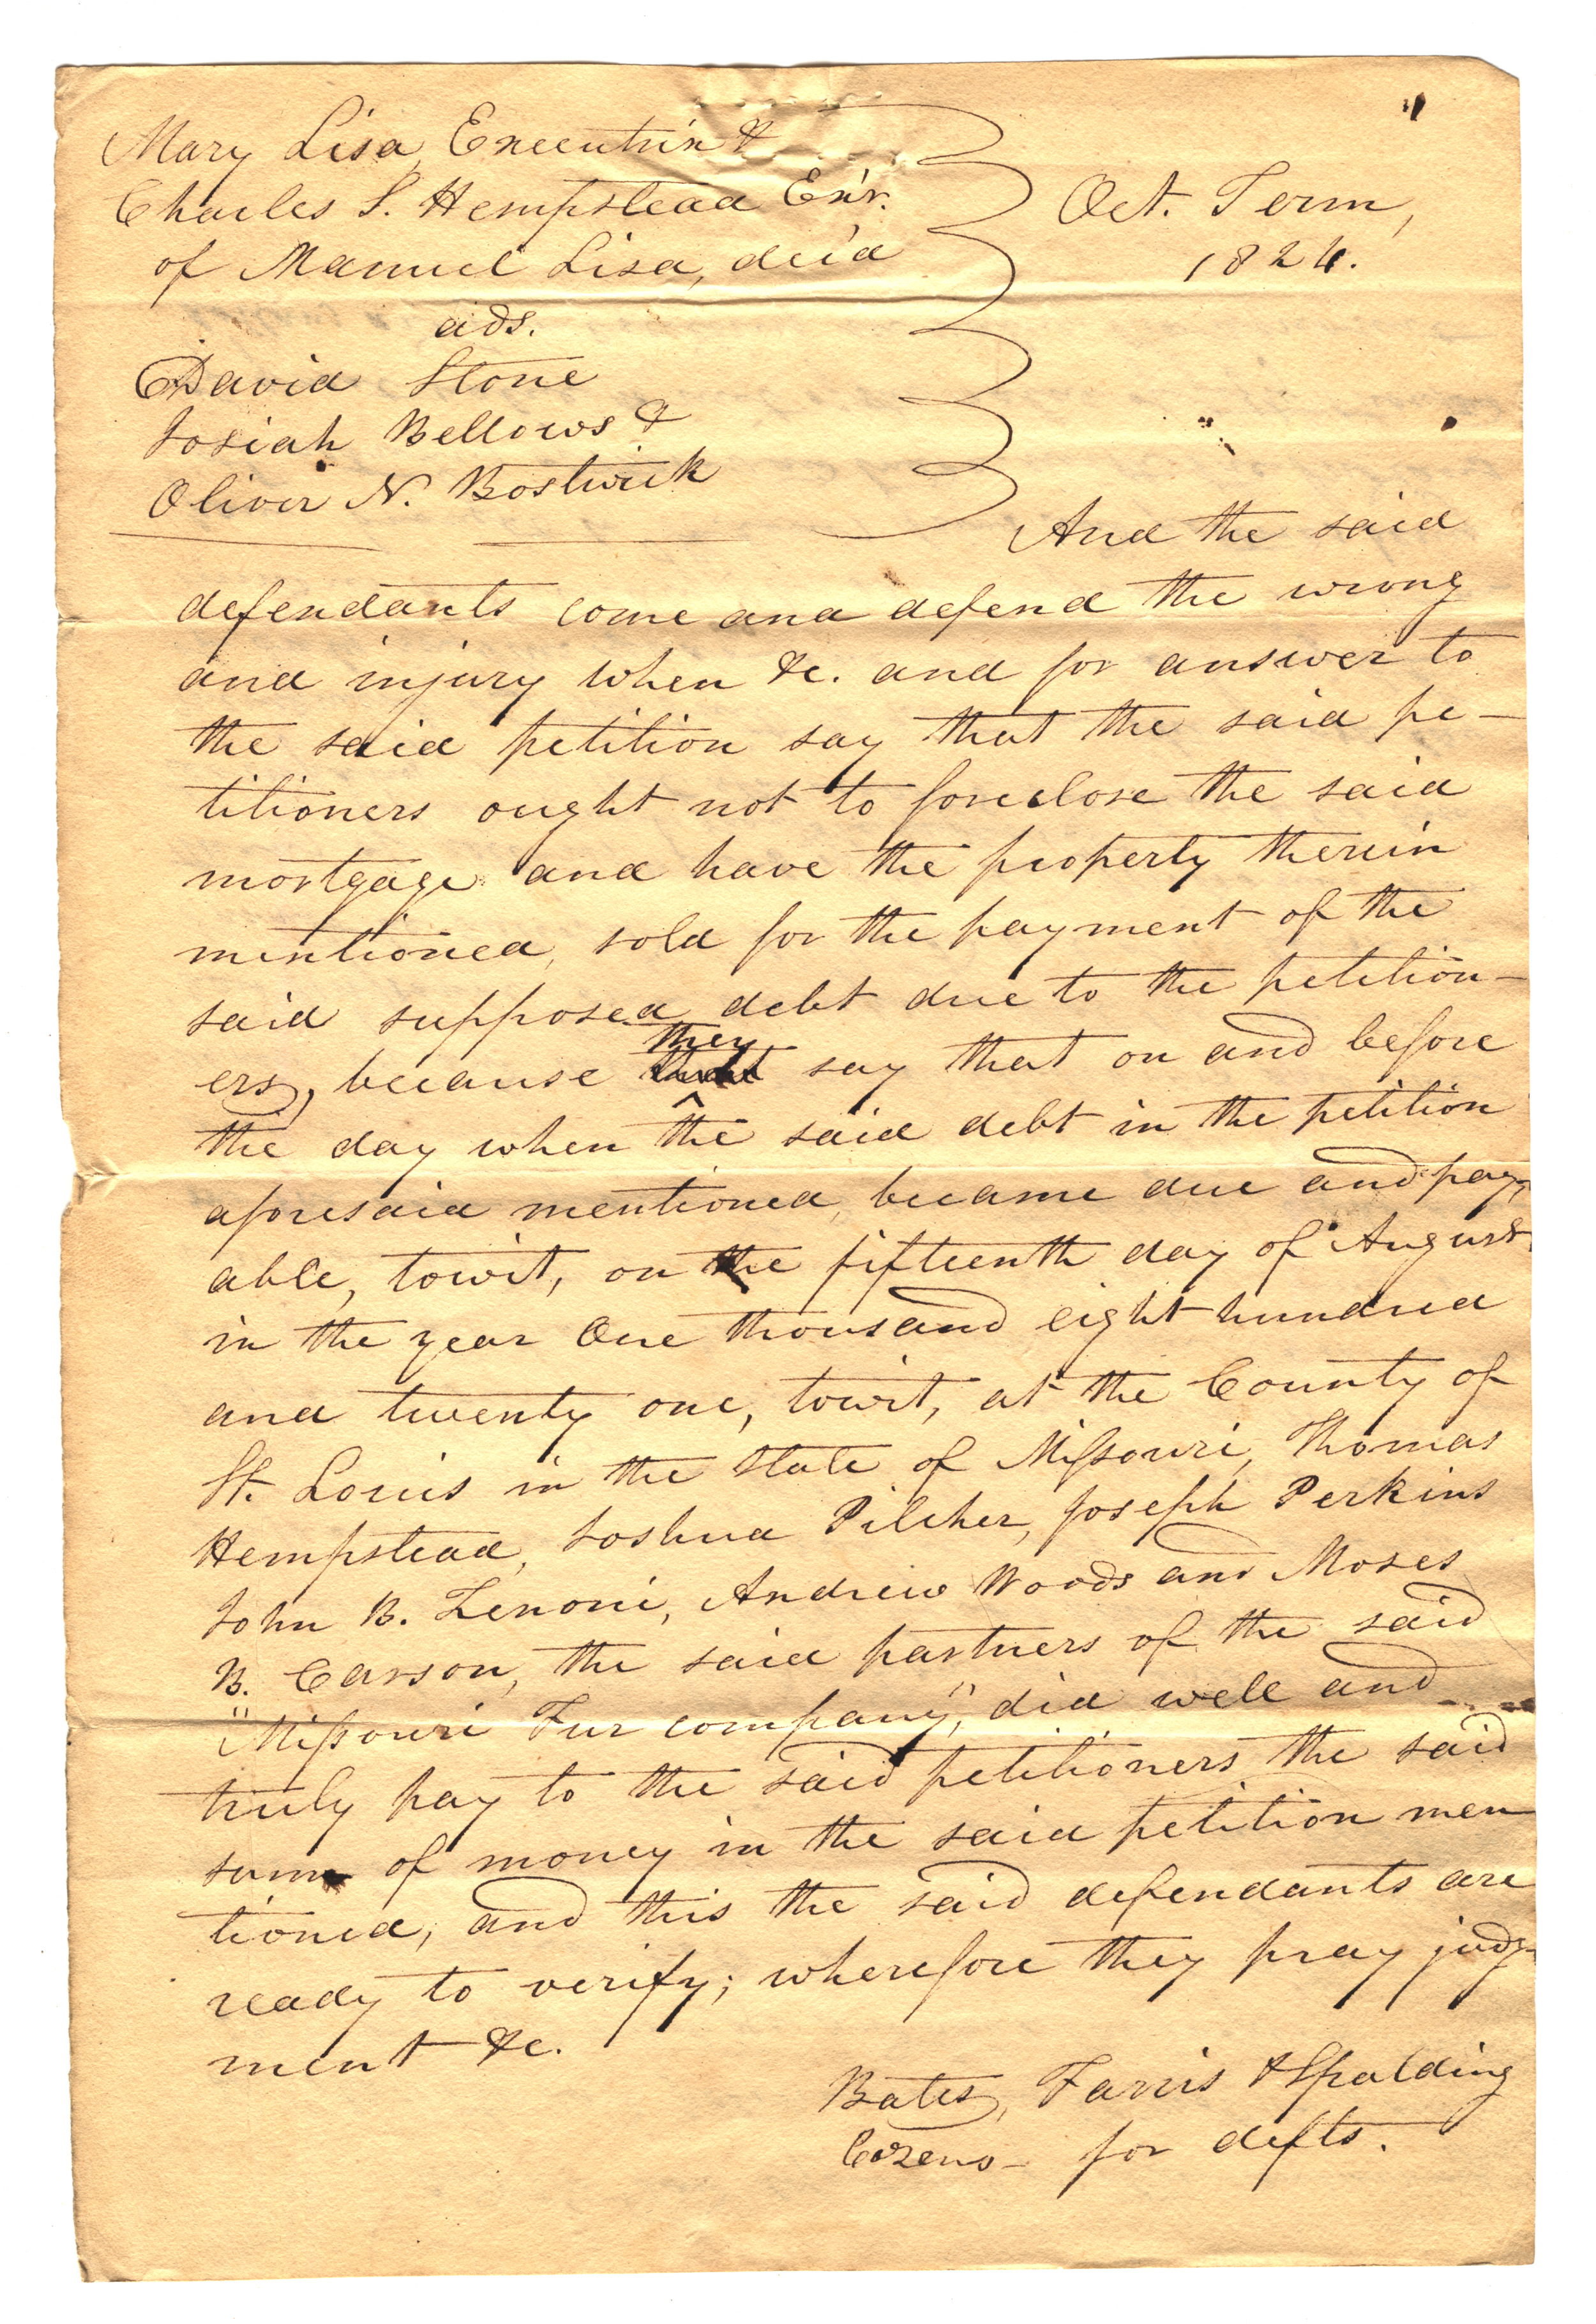 Mary Lisa, Executrix &
Charles S. Hempstead Ex'r.
of Manuel Lisa, dec'd
Oct. Term,
1824.
ads.
David Stone
Josiah Bellows &
Oliver N. Bostwick
And the said
defendants come and defend the wrong
and injury when &c. and for answer to
the said petition say that the said pe-
titioners ought not to foreclose the said
mortgage and have the property therein
mentioned, sold for the payment of the
said supposed debt due to the petition-
ers, because they say that on and before
the day when the said debt in the petition
aforesaid mentioned, became due and pay-
able, towit, on the fifteenth day of August
in the year One thousand eight hundred
and twenty one, towit, at the County of
St. Louis in the State of Missouri, Thomas
Hempstead, Joshua Pilcher, Joseph Perkins
John B. Zenoni, Andrew Woods and Moses
B. Carson, the said partners of the said
"Missouri Fur company," did well and
truly pay to the said petitioners the said
sum of money in the said petition men
tioned, and this the said defendants are
ready to verify; wherefore they pray judg-
ment &c.
Bates, Farris & Spalding
Cozens - for defts.